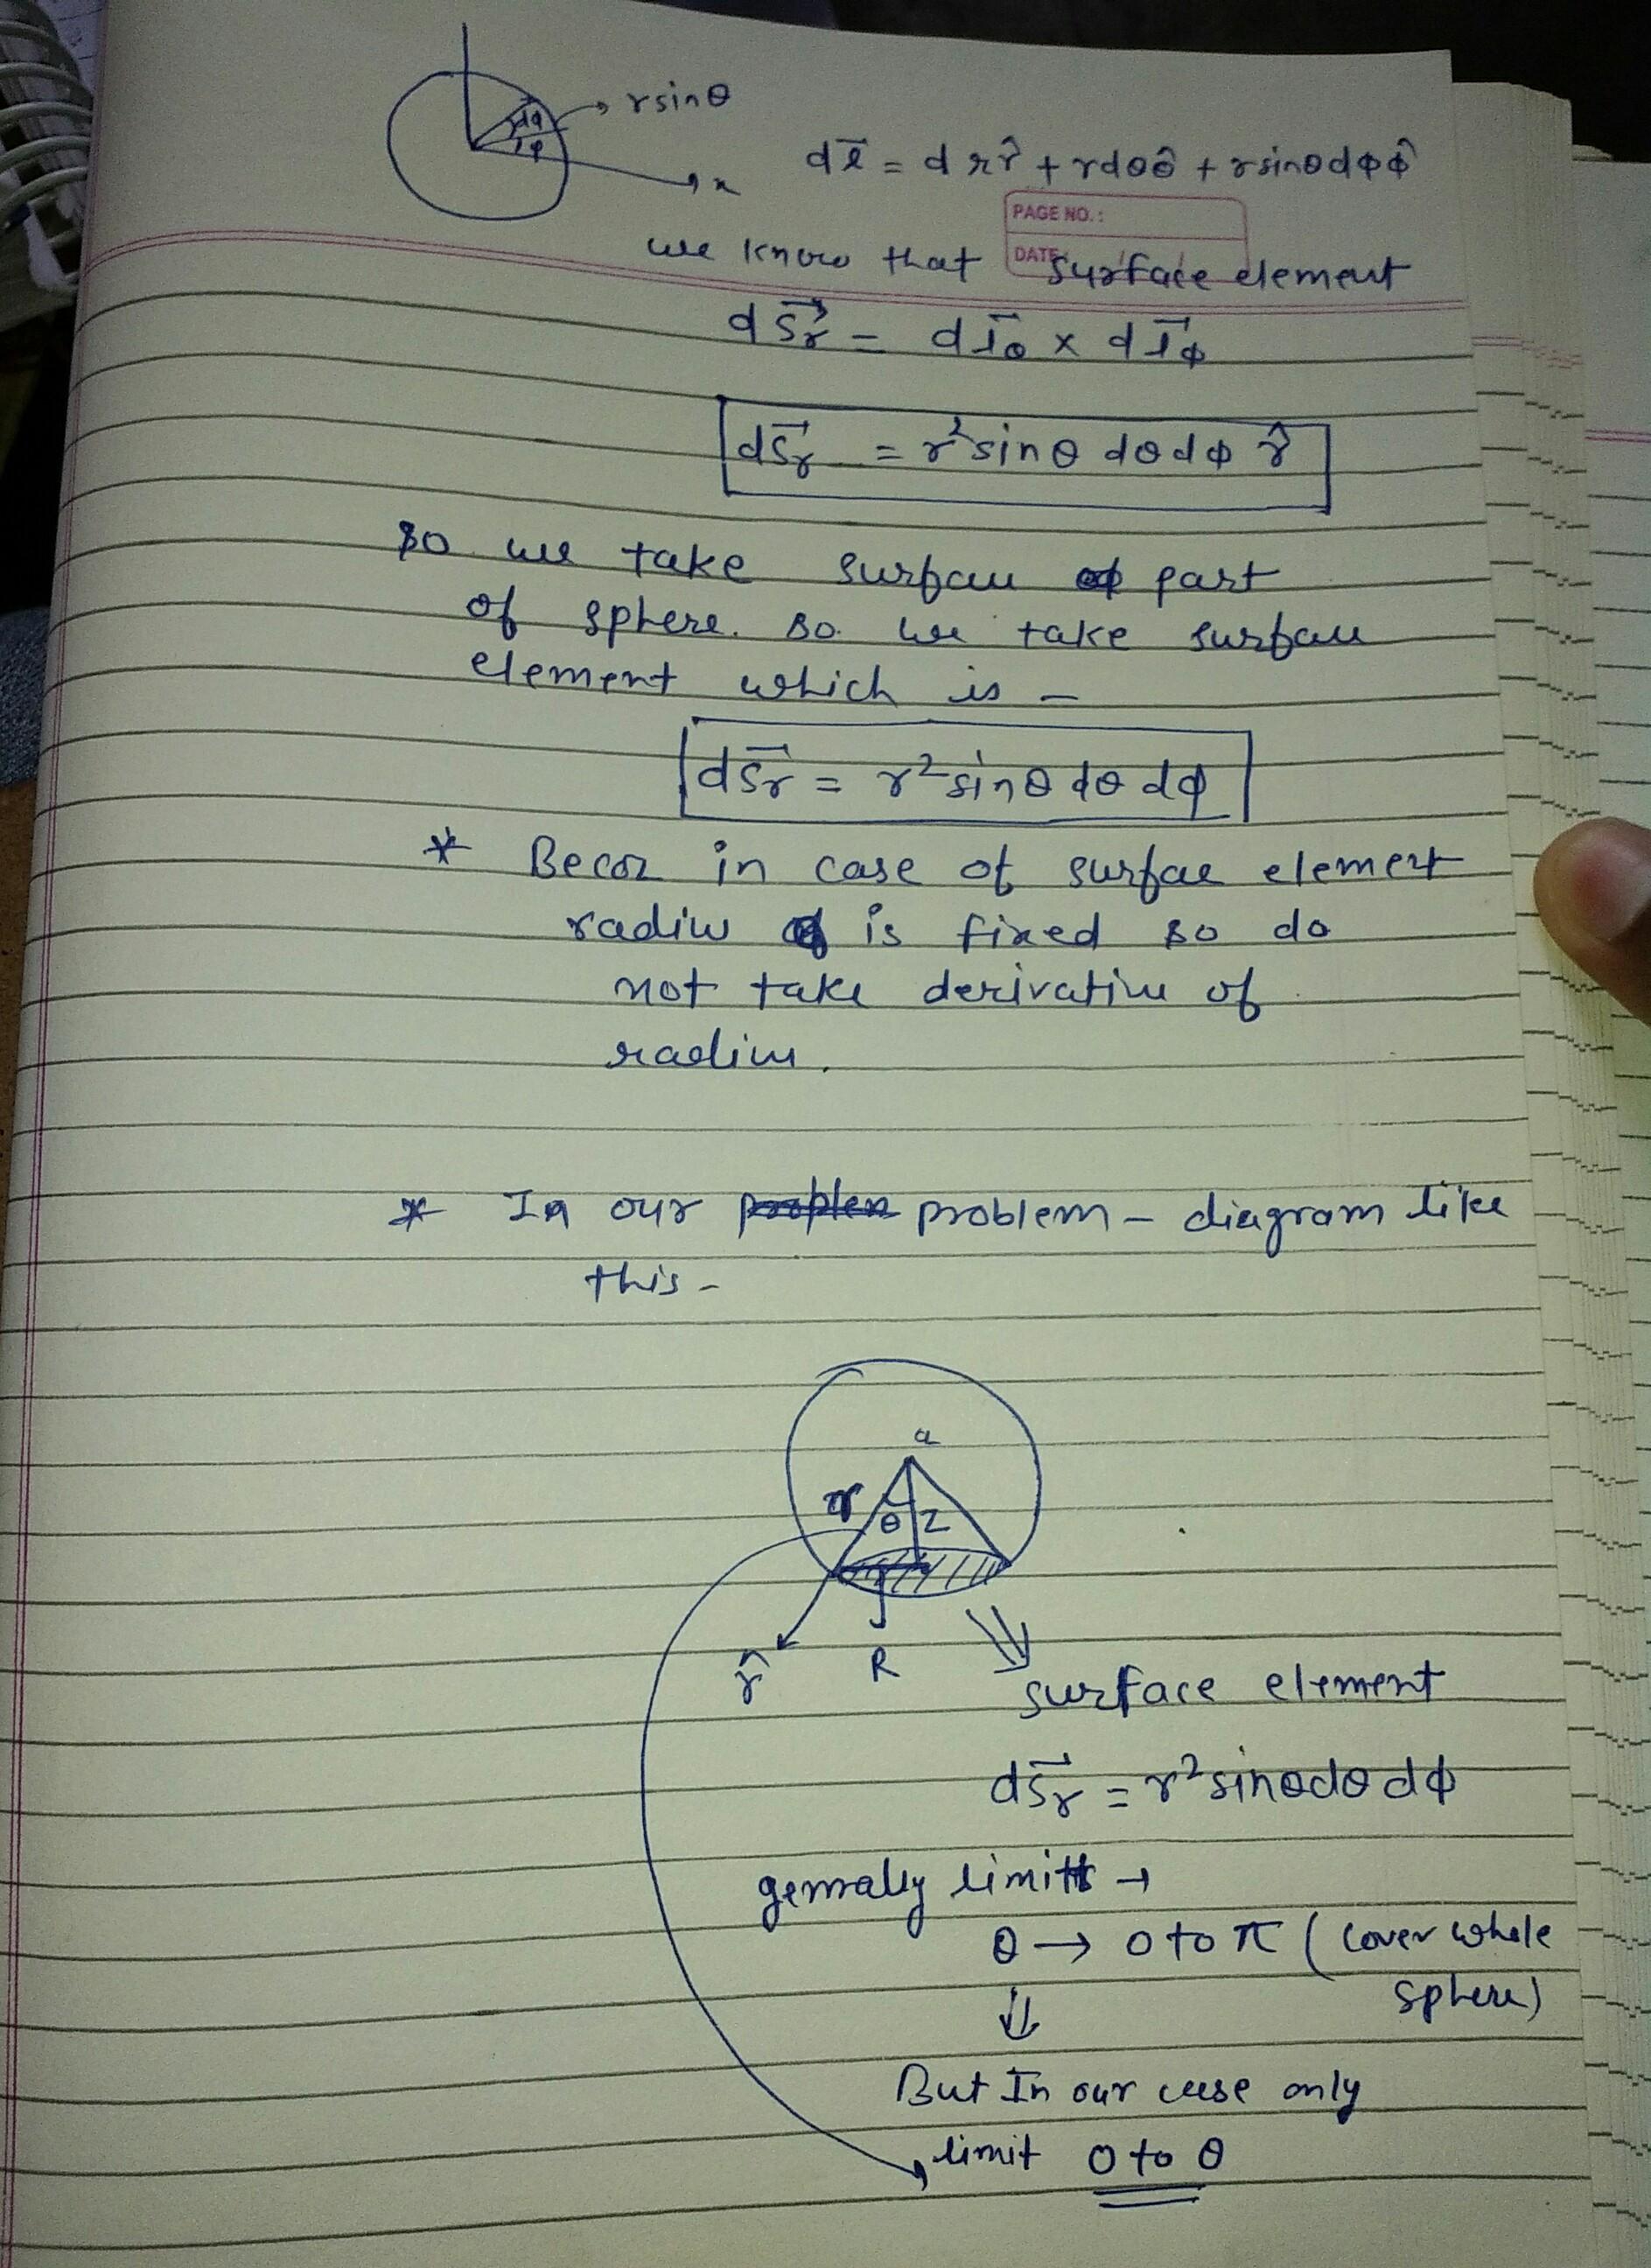 rsinθ
dφ
φ
x
dl⃗ = dr r̂ + rdθ θ̂ + rsinθdφ φ̂
PAGE NO.:
DATE:
we know that surface element
dS⃗r = dl⃗θ × dl⃗φ
dS⃗r = r² sinθ dθ dφ r̂
so we take surfau part
of sphere. so we take surfau
element which is –
dS⃗r = r² sinθ dθ dφ
* Becoz in case of surfae element
radiu is fixed so do
not take derivative of
radius.
* In our problem – diagram like
this –
a
r
θ
Z
r̂
R
surface element
dS⃗r = r² sinθdθ dφ
genrally limits →
θ → 0 to π (cover whole
sphere)
⇓
But In our case only
limit 0 to θ